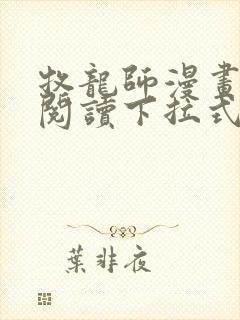 牧龍師漫畫
閱讀下拉式
葉非夜